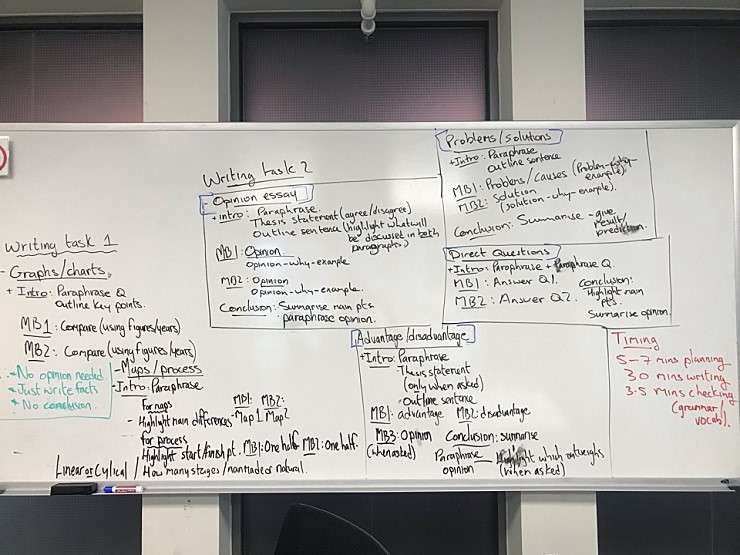 Writing task 1
- Graphs/charts.
+ Intro: Paraphrase Q
Outline key points.
MB1: Compare (using figures/years)
MB2: Compare (using figures/years)
- No opinion needed
* Just write facts
* No conclusion.
- Maps/process
- Intro: Paraphrase
For maps
- Highlight main differences
MB1: MB2:
- Map 1 Map 2
for process
Highlight start/finish pt. MB1: One half MB2: One half.
Linear or Cylical / How many stages / manmade or natural.
Writing task 2
- Opinion essay
+ intro: Paraphrase
Thesis statement (agree/disagree)
Outline sentence (highlight what will
be discussed in both
paragraphs.)
MB1: Opinion
opinion - why - example
MB2: Opinion
opinion - why - example.
Conclusion: Summarise main pts
paraphrase opinion.
Problems/solutions
+ Intro: Paraphrase
Outline sentence
MB1: Problems/causes (Problem - why -
example).
MB2: Solution
(solution - why - example).
Conclusion: Summarise - give
result/
prediction.
Direct Questions
+ Intro: Paraphrase + Paraphrase Q.
MB1: Answer Q1.
MB2: Answer Q2.
Conclusion:
Highlight main
pts.
Summarise opinion.
Advantage/disadvantage
+ Intro: Paraphrase
Thesis statement
(only when asked)
Outline sentence
MB1: advantage MB2: disadvantage
MB3: Opinion
(when asked)
Conclusion: summarise
Paraphrase
opinion
Highlight which outweighs
(when asked)
Timing
5-7 mins planning
30 mins writing
3-5 mins checking
(grammar/
vocab).